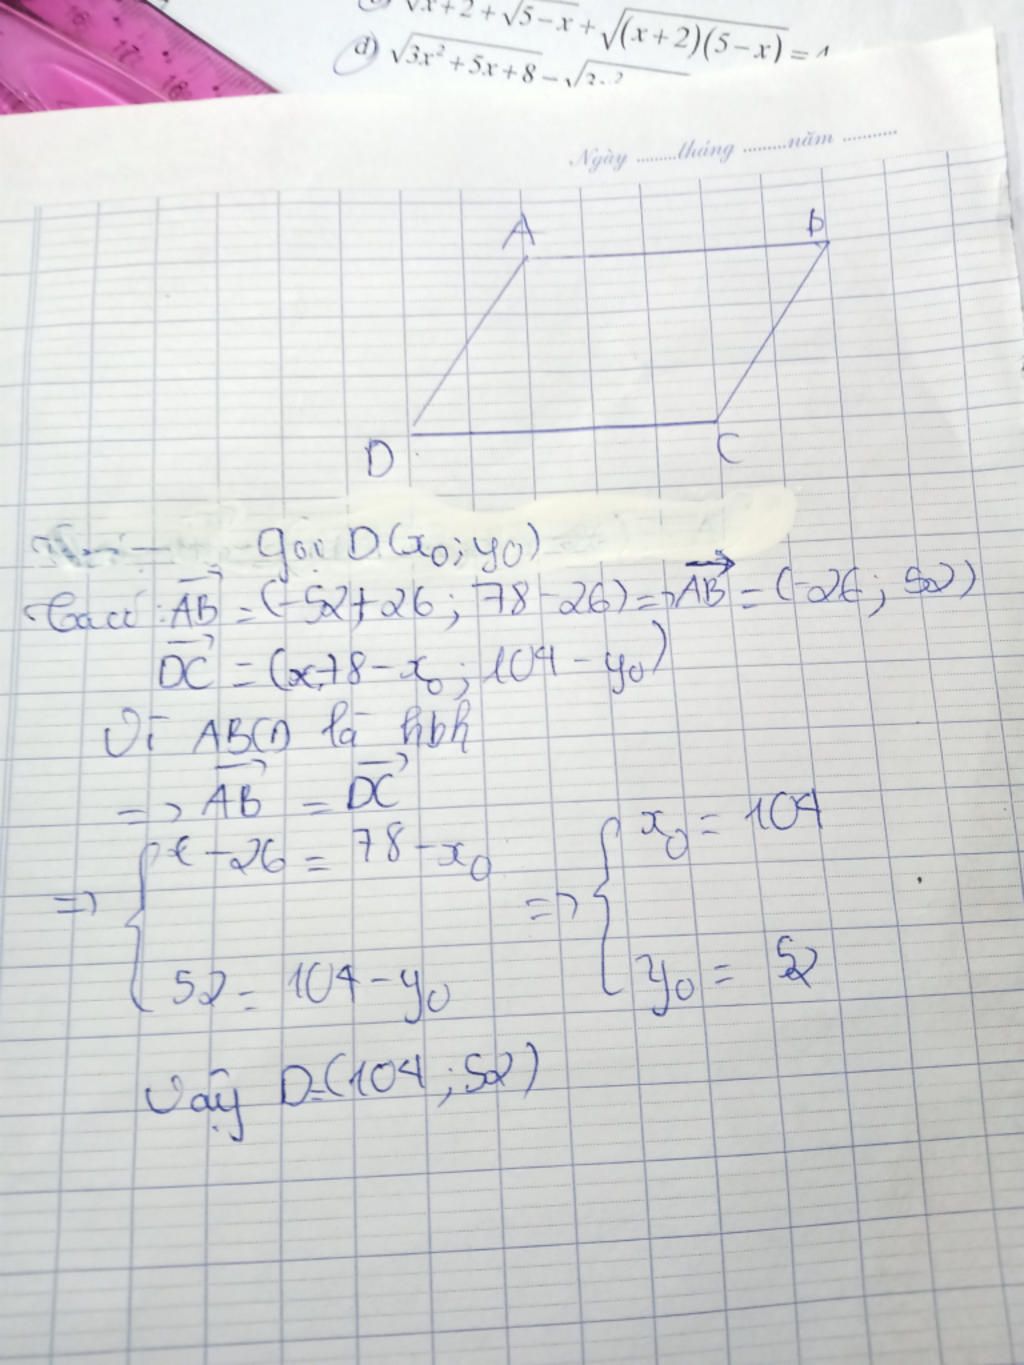 √x+2 + √5−x + √(x+2)(5−x) = 4
d) √3x² + 5x + 8 − √3x²
Ngày ........tháng ........năm ..........
A B
D C
Gọi D(x₀; y₀)
Ta có: AB = (-52+26; 78-26) => AB = (-26; 52)
DC = (78 - x₀; 104 - y₀)
Vì ABCD là hbh
=> AB = DC
=> { -26 = 78 - x₀ => { x₀ = 104
52 = 104 - y₀ y₀ = 52
Vậy D=(104; 52)